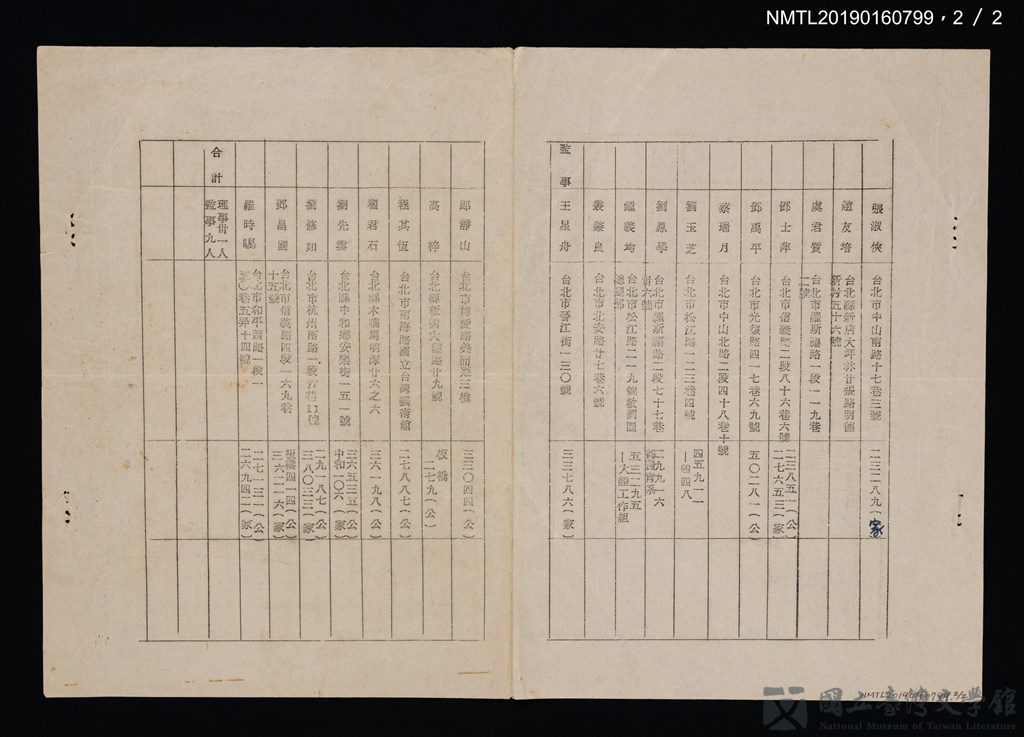 NMTL20190160799，2 / 2
張淑俠 台北市中山南路十七巷三號 二三二八九(家)
趙友培 台北縣新店大坪林廿張路明德新村五十六號
虞君質 台北市羅斯福路一段一一九巷二號
鄧士萍 台北市信義路二段八十六巷六號 二三八五一(公) 二七六五三(家)
鄧禹平 台北市光復路四一七巷六九號 五〇二八一(公)
蔡瑞月 台北市中山北路二段四十八巷十號
劉玉芝 台北市松江路一二三巷四號 四五九一一—四四八
劉鳳學 台北市羅斯福路二段七十七巷 二九九一六
鍾義均 台北市松江路二一九號 五三二九五—大體工作組
叢繼良 台北市北安路廿七巷六號
監事 王星舟 台北市晉江街一三〇號 三三七八六(家)
郎靜山 台北市博愛路美而廉三樓 三三〇四四(公)
高梓 台北縣板橋大觀路廿九號 板橋二七九(公)
程其恆 台北市南海路國立台灣藝術館 二七八八七(公)
程君石 台北縣木柵馬明潭廿六之六 三六一九八(公)
劉先雲 台北縣中和鄉安樂街一五一號 三六五三五(公) 中和一〇六(家)
劉修如 台北市杭州南路一段 11號 二九一八七(公) 三八〇三三(家)
鄧昌國 台北市信義路四段一六九巷十五號 板橋四一四(公) 三六二二六(家)
羅時暘 台北市和平西路一段一三〇巷五弄十四號 二七一三二(公) 二六九四二(家)
合計 理事卅一人
監事九人
NMTL20190160799.2/2
國立臺灣文學館
National Museum of Taiwan Literature